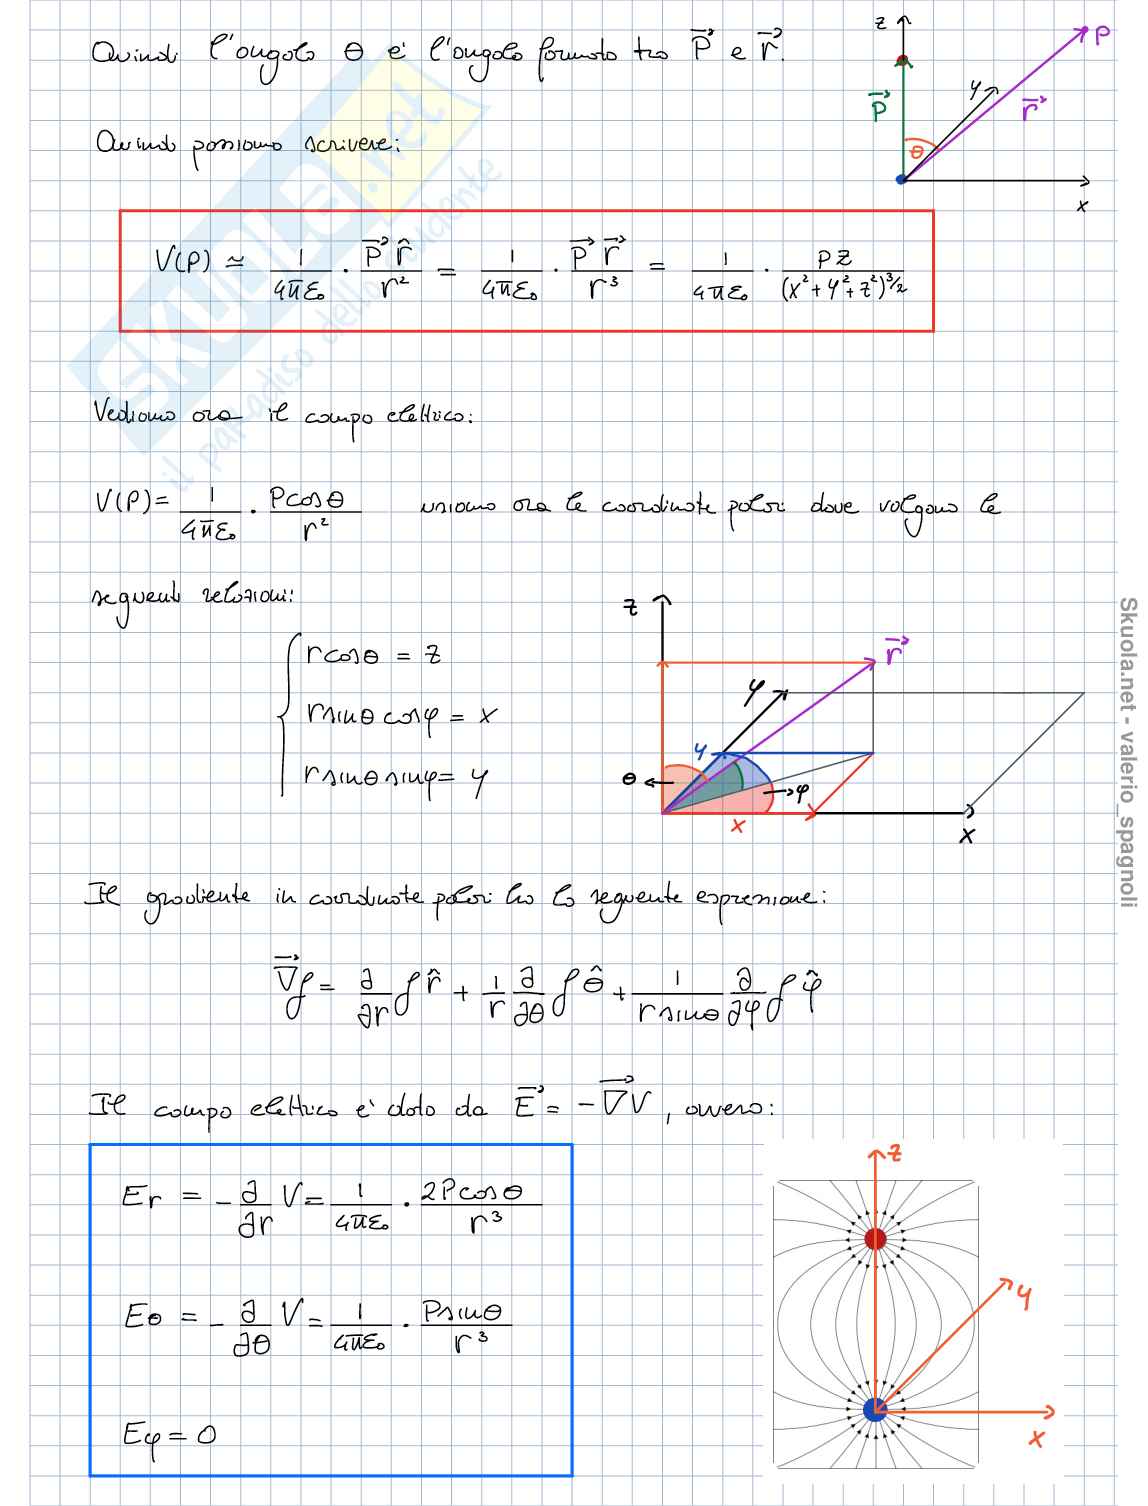 Quindi l'angolo θ è l'angolo formato tra P⃗ e r⃗.
z
P
y
P⃗
r⃗
θ
x
Quindi possiamo scrivere:
V(P) ≃ 1/(4πε₀) · P⃗ r̂/r² = 1/(4πε₀) · P⃗ r⃗/r³ = 1/(4πε₀) · PZ/(x²+y²+z²)^3/2
SKUOLA.net
il paradiso dello studente
Vediamo ora il campo elettrico:
V(P) = 1/(4πε₀) · Pcosθ/r² usiamo ora le coordinate polari dove valgono le
seguenti relazioni:
rcosθ = z
rsinθcosφ = x
rsinθsinφ = y
z
r⃗
y
y
θ
φ
x
x
Il gradiente in coordinate polari ha la seguente espressione:
∇⃗f = ∂/∂r f r̂ + 1/r ∂/∂θ f θ̂ + 1/(rsinθ) ∂/∂φ f φ̂
Il campo elettrico è dato da E⃗ = -∇⃗V, ovvero:
Er = -∂/∂r V = 1/(4πε₀) · 2Pcosθ/r³
Eθ = -∂/∂θ V = 1/(4πε₀) · Psinθ/r³
Eφ = 0
z
y
x
Skuola.net - valerio_spagnoli